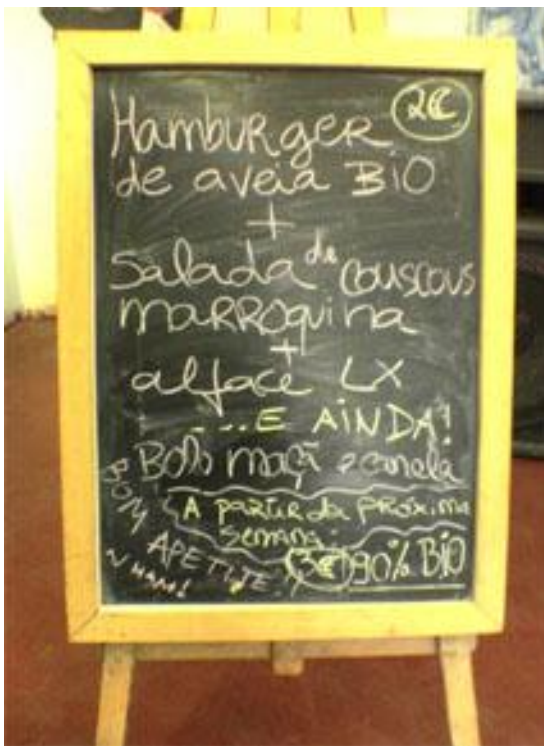 2€
Hamburger
de aveia BiO
+
Salada de couscous
marroquina
+
alface LX
...E AiNDA!
Bolo maçã e canela
A partir da próxima
semana:
3€ 90% BiO
BOM APETITE!
NHAM!